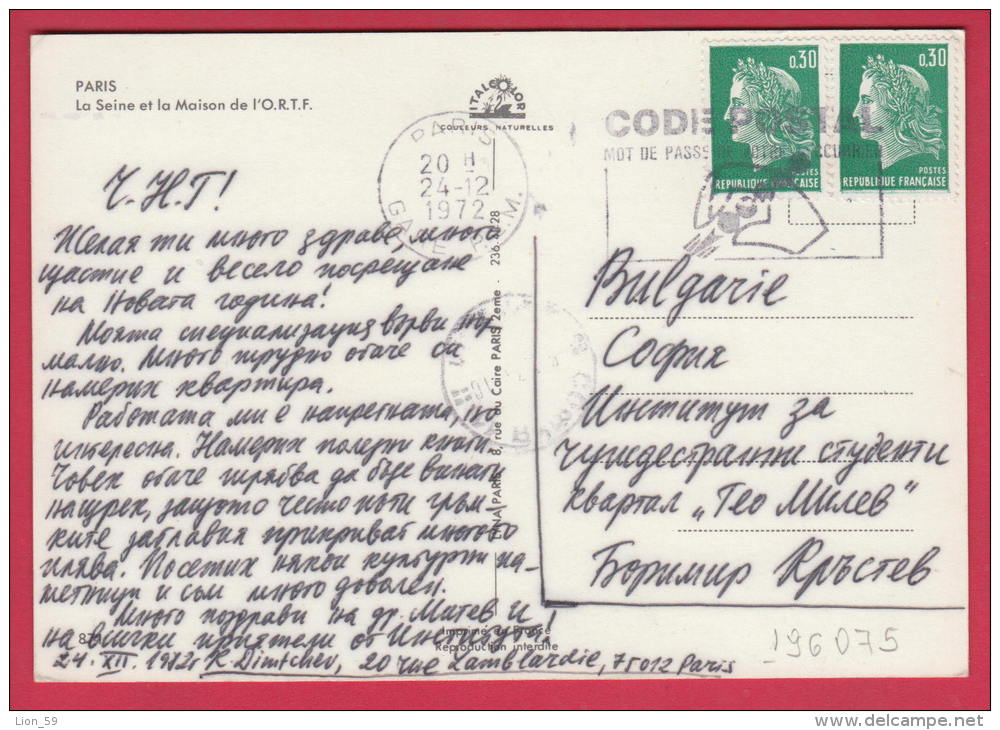 PARIS
La Seine et la Maison de l'O.R.T.F.
ITALCOLOR
COULEURS NATURELLES
PARIS
20 H
24-12
1972
GARE P.L.M.
CODE POSTAL
MOT DE PASSE DE VOTRE COURRIER
0,30
POSTES
REPUBLIQUE FRANÇAISE
0,30
POSTES
REPUBLIQUE FRANÇAISE
Ч.Н.Г!
Желая ти много здраве, много
щастие и весело посрещане
на Новата година!
Моята специализация върви нор
мално. Много трудно обаче си
намерих квартира.
Работата ми е напрегната, но
интересна. Намерих полезни книги.
Човек обаче трябва да бъде винаги
нащрек, защото често пъти гръм-
ките заглавия прикриват многото
плява. Посетих някои културни па-
метници и съм много доволен.
Много поздрави на др. Митев и
на всички приятели от Института!
24.XII.1972г K. Dimtchev, 20 rue Lamblardie, 75012 Paris
87
Imprimé en France
Reproduction interdite
PARIS 8, rue du Caire PARIS 2eme · 236
Bulgarie
София
Институт за
чуждестранни студенти
квартал „Гео Милев"
Боримир Кръстев
196075
Lion_59
delcampe.net